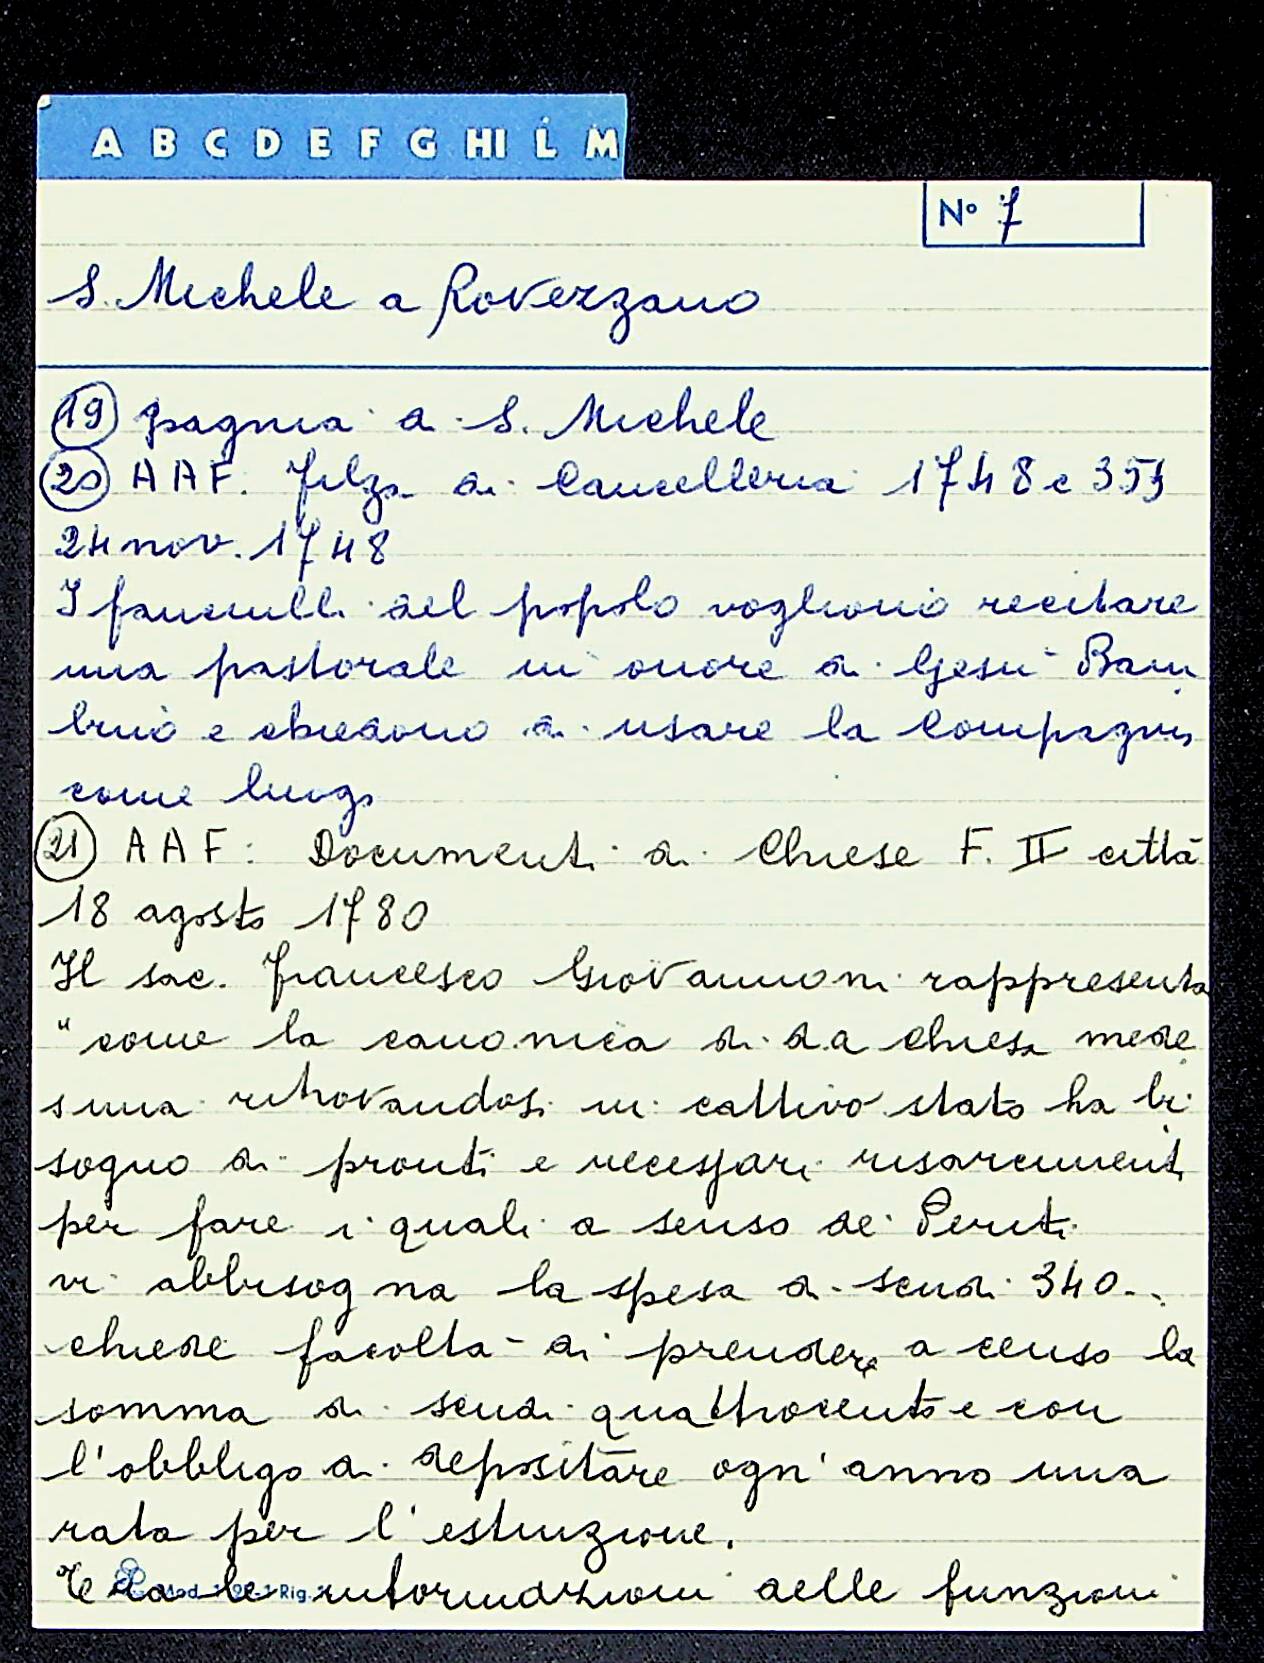 A B C D E F G HI L M
N° 7
S. Michele a Rovezzano
19 pagnia a S. Michele
20 AAF. Filza di Cancelleria 1748 c 355
24 nov. 1748
I fanciulli del popolo vogliono recitare
una pastorale in onore di Gesù Bam
bino e chiedono di usare la Compagnia
come luogo
21 AAF: Documenti di Chiese F. II città
18 agosto 1780
Il sac. Francesco Giovannoni rappresenta
"come la canonica di d.a chiesa mede
sima ritrovandosi in cattivo stato ha bi
sogno di pronti e necessari risarcimenti
per fare i quali a senso de' Periti
vi abbisogna la spesa di scudi 340..
chiede facoltà di prendere a censo la
somma di scudi quattrocento e con
l'obbligo di depositare ogn'anno una
rata per l'estinzione.
E da le informazioni delle funzioni
Mod. Rig.